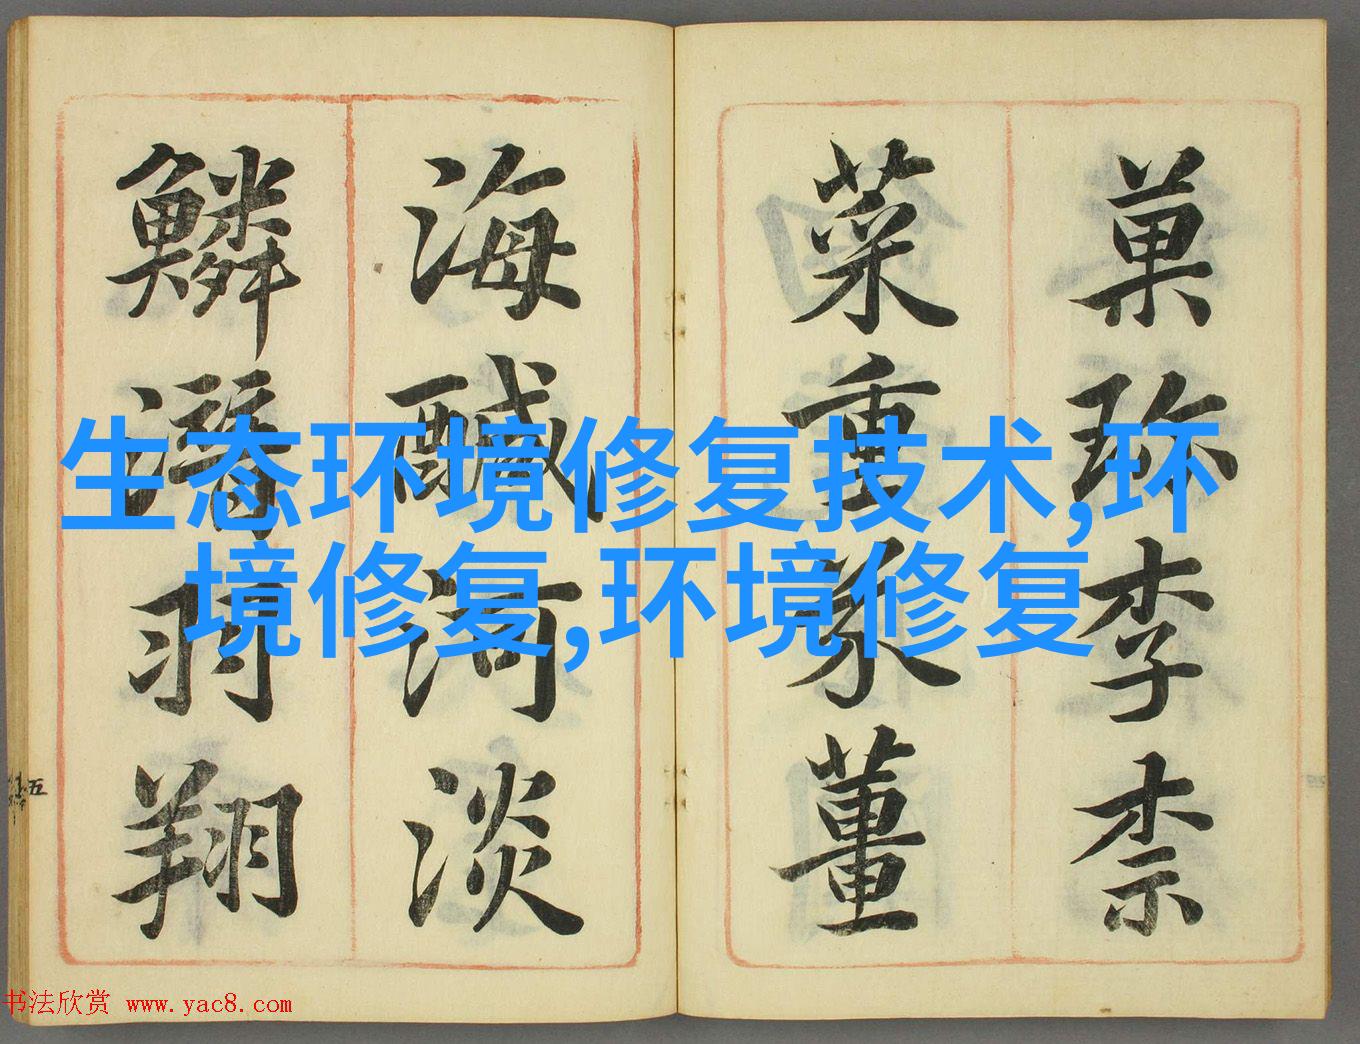 菓珎李柰
菜重芥薑
海鹹河淡
鱗潛羽翔
五
生态环境修复技术,环
境修复,环境修复
书法欣赏 www.yac8.com